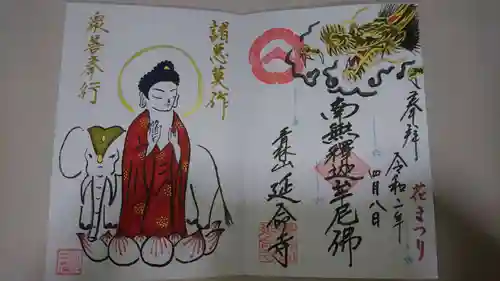 花まつり
奉拝 令和二年
四月八日
南無釋迦牟尼佛
青林山 延命寺
諸悪莫作
衆善奉行